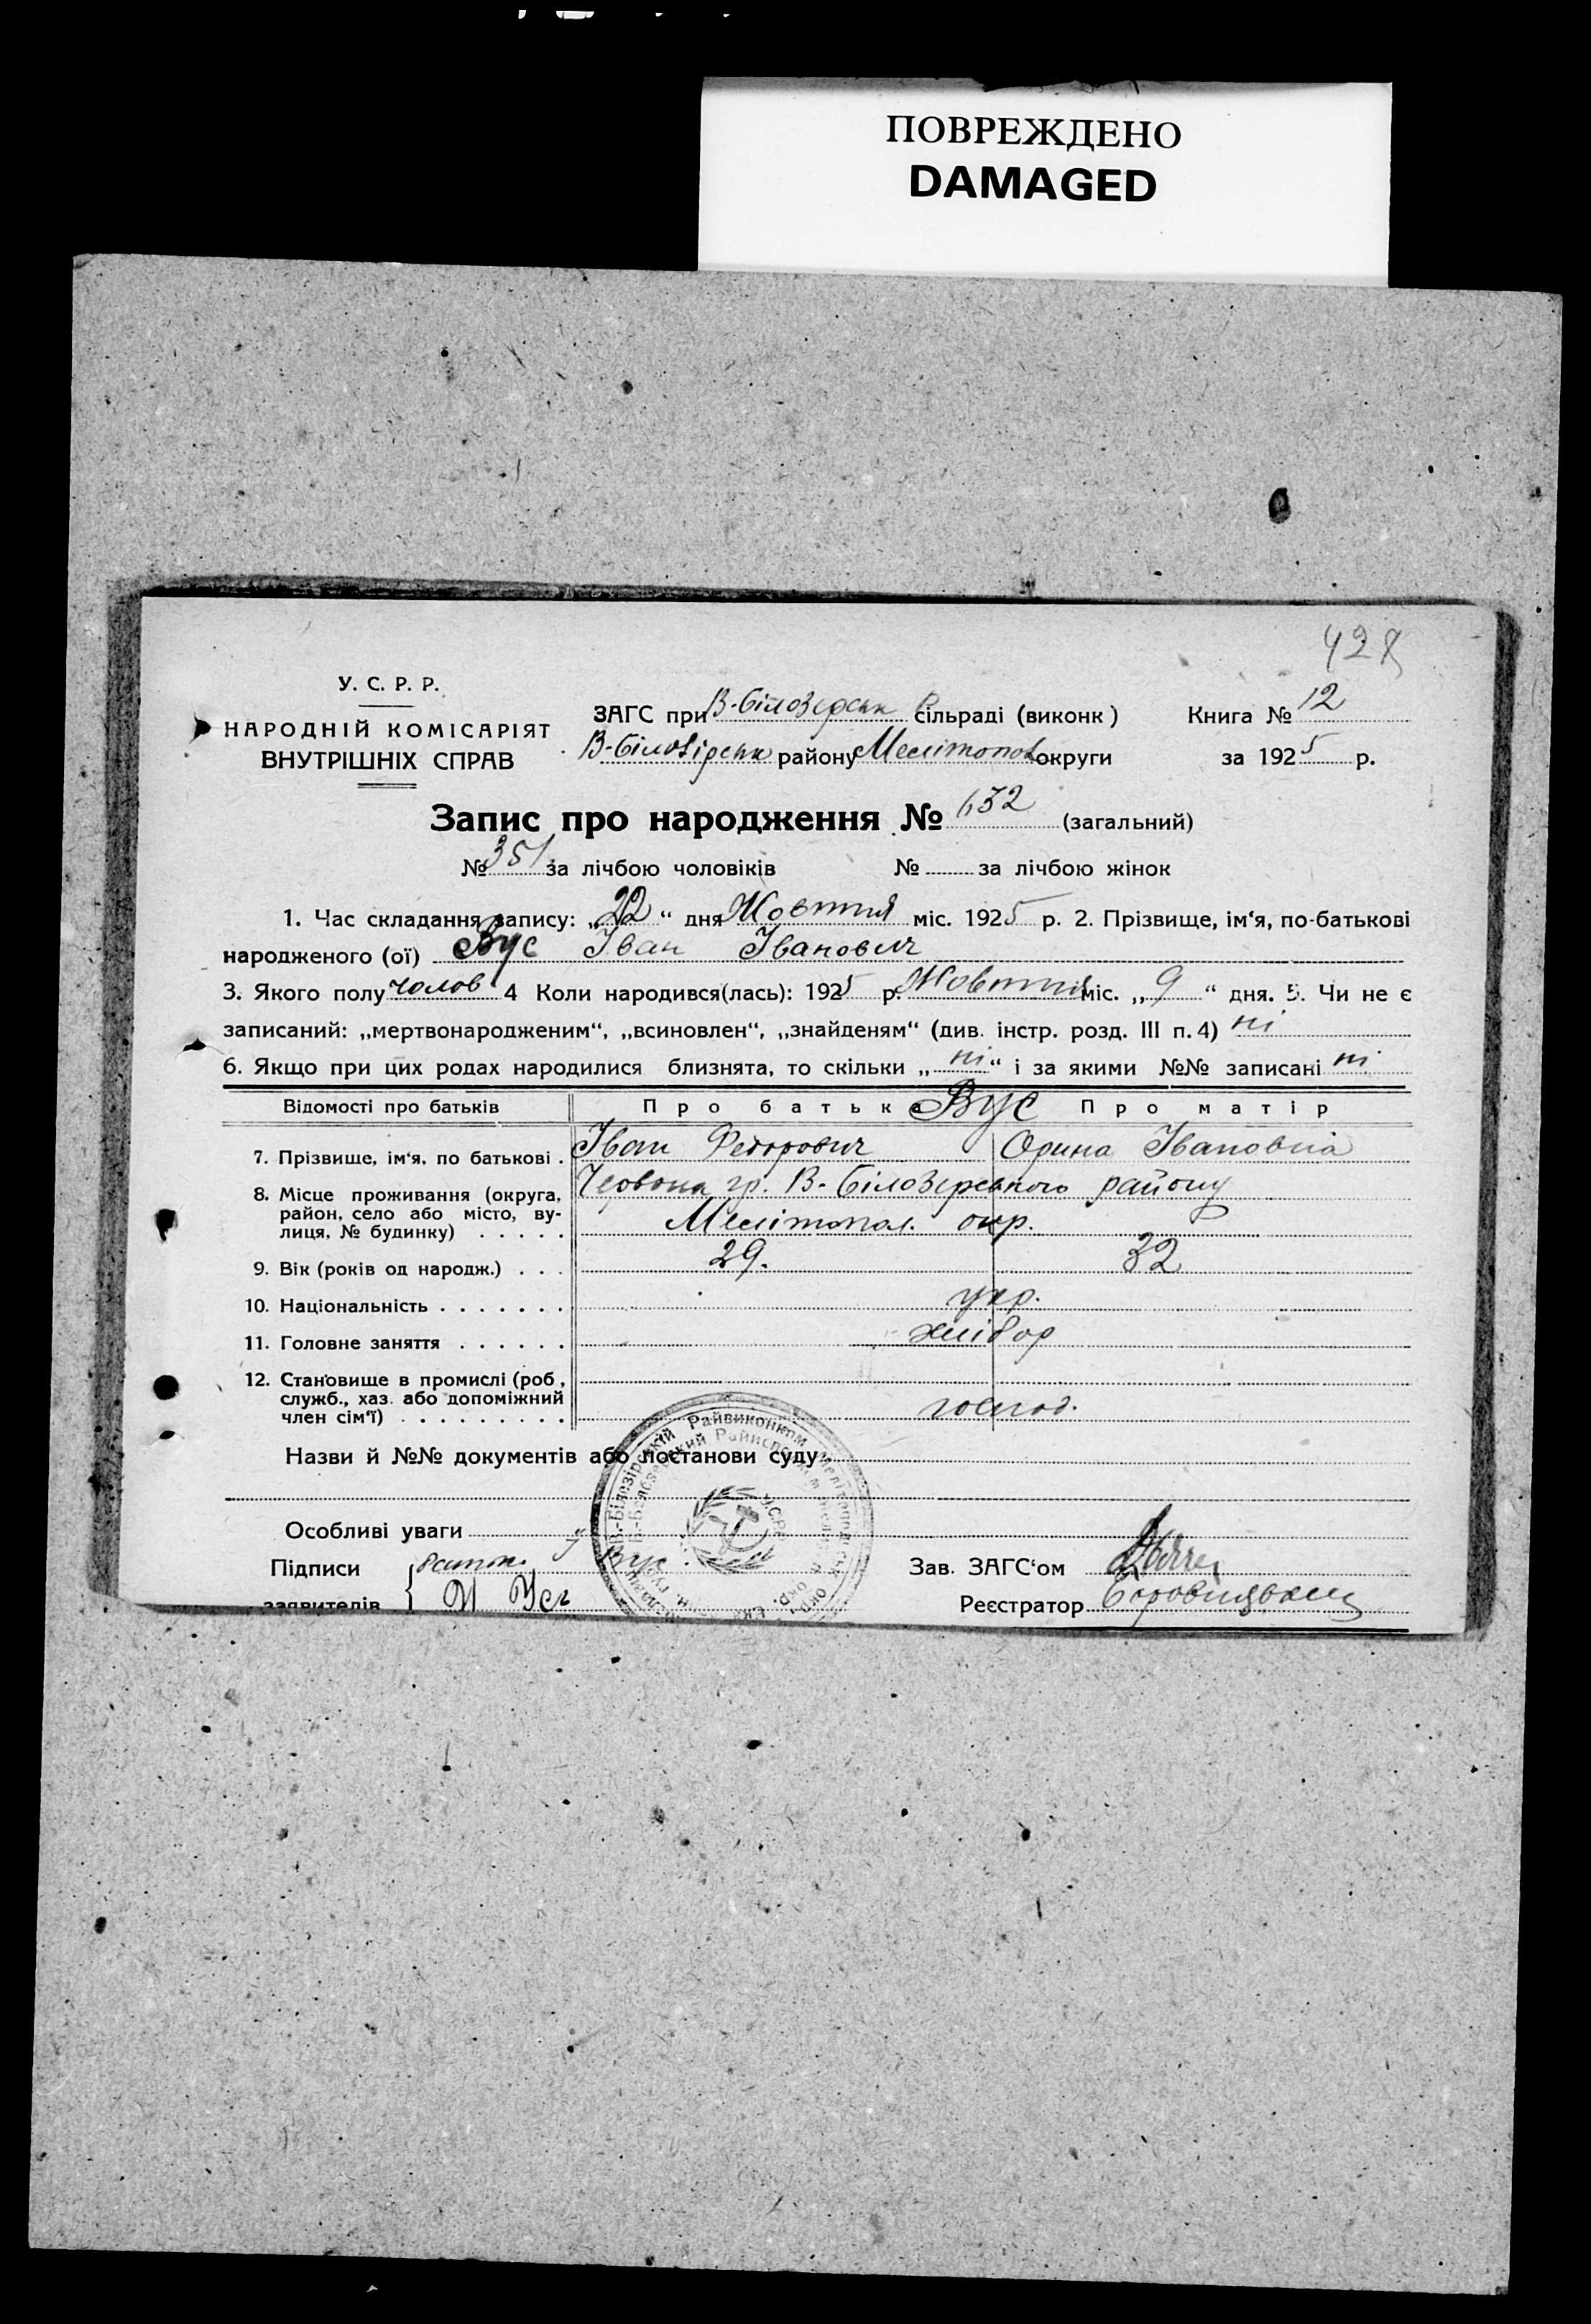 ПОВРЕЖДЕНО
DAMAGED
428
У. С. Р. Р.
НАРОДНІЙ КОМІСАРІЯТ
ВНУТРІШНІХ СПРАВ
ЗАГС при В-Білозерськ сільраді (виконк)
В-Білозірськ району Мелітопол округи
Книга № 12
за 1925 р.
Запис про народження № 632 (загальний)
№ 351 за лічбою чоловіків № за лічбою жінок
1. Час складання запису: „22“ дня Жовтня міс. 1925 р. 2. Прізвище, ім‘я, по-батькові
народженого (ої) Вус Іван Іванович
3. Якого полу чолов 4 Коли народився(лась): 1925 р. Жовтня міс. „9“ дня. 5. Чи не є
записаний: „мертвонародженим“, „всиновлен“, „знайденям“ (див. інстр. розд. III п. 4) ні
6. Якщо при цих родах народилися близнята, то скільки „ні“ і за якими №№ записані ні
Відомості про батьків Про батька Вус Про матір
7. Прізвище, ім‘я, по батькові . Іван Федорович Орина Івановна
8. Місце проживання (округа, район, село або місто, вулиця, № будинку) . . . . . Червона гр. В-Білозерського району
Мелітопол. окр.
9. Вік (років од народж.) . . . 29. 32
10. Національність . . . . . . . укр.
11. Головне заняття . . . . . . хлібор
12. Становище в промислі (роб., служб., хаз. або допоміжний член сім‘ї) . . . . . . . . . господ.
Назви й №№ документів або постанови суду
Особливі уваги
Підписи батьк. І Вус
заявителів
Зав. ЗАГС‘ом
Реєстратор
В.-Білозірській Райвиконком Мелітопольськ. окр.
У.С.Р.Р.